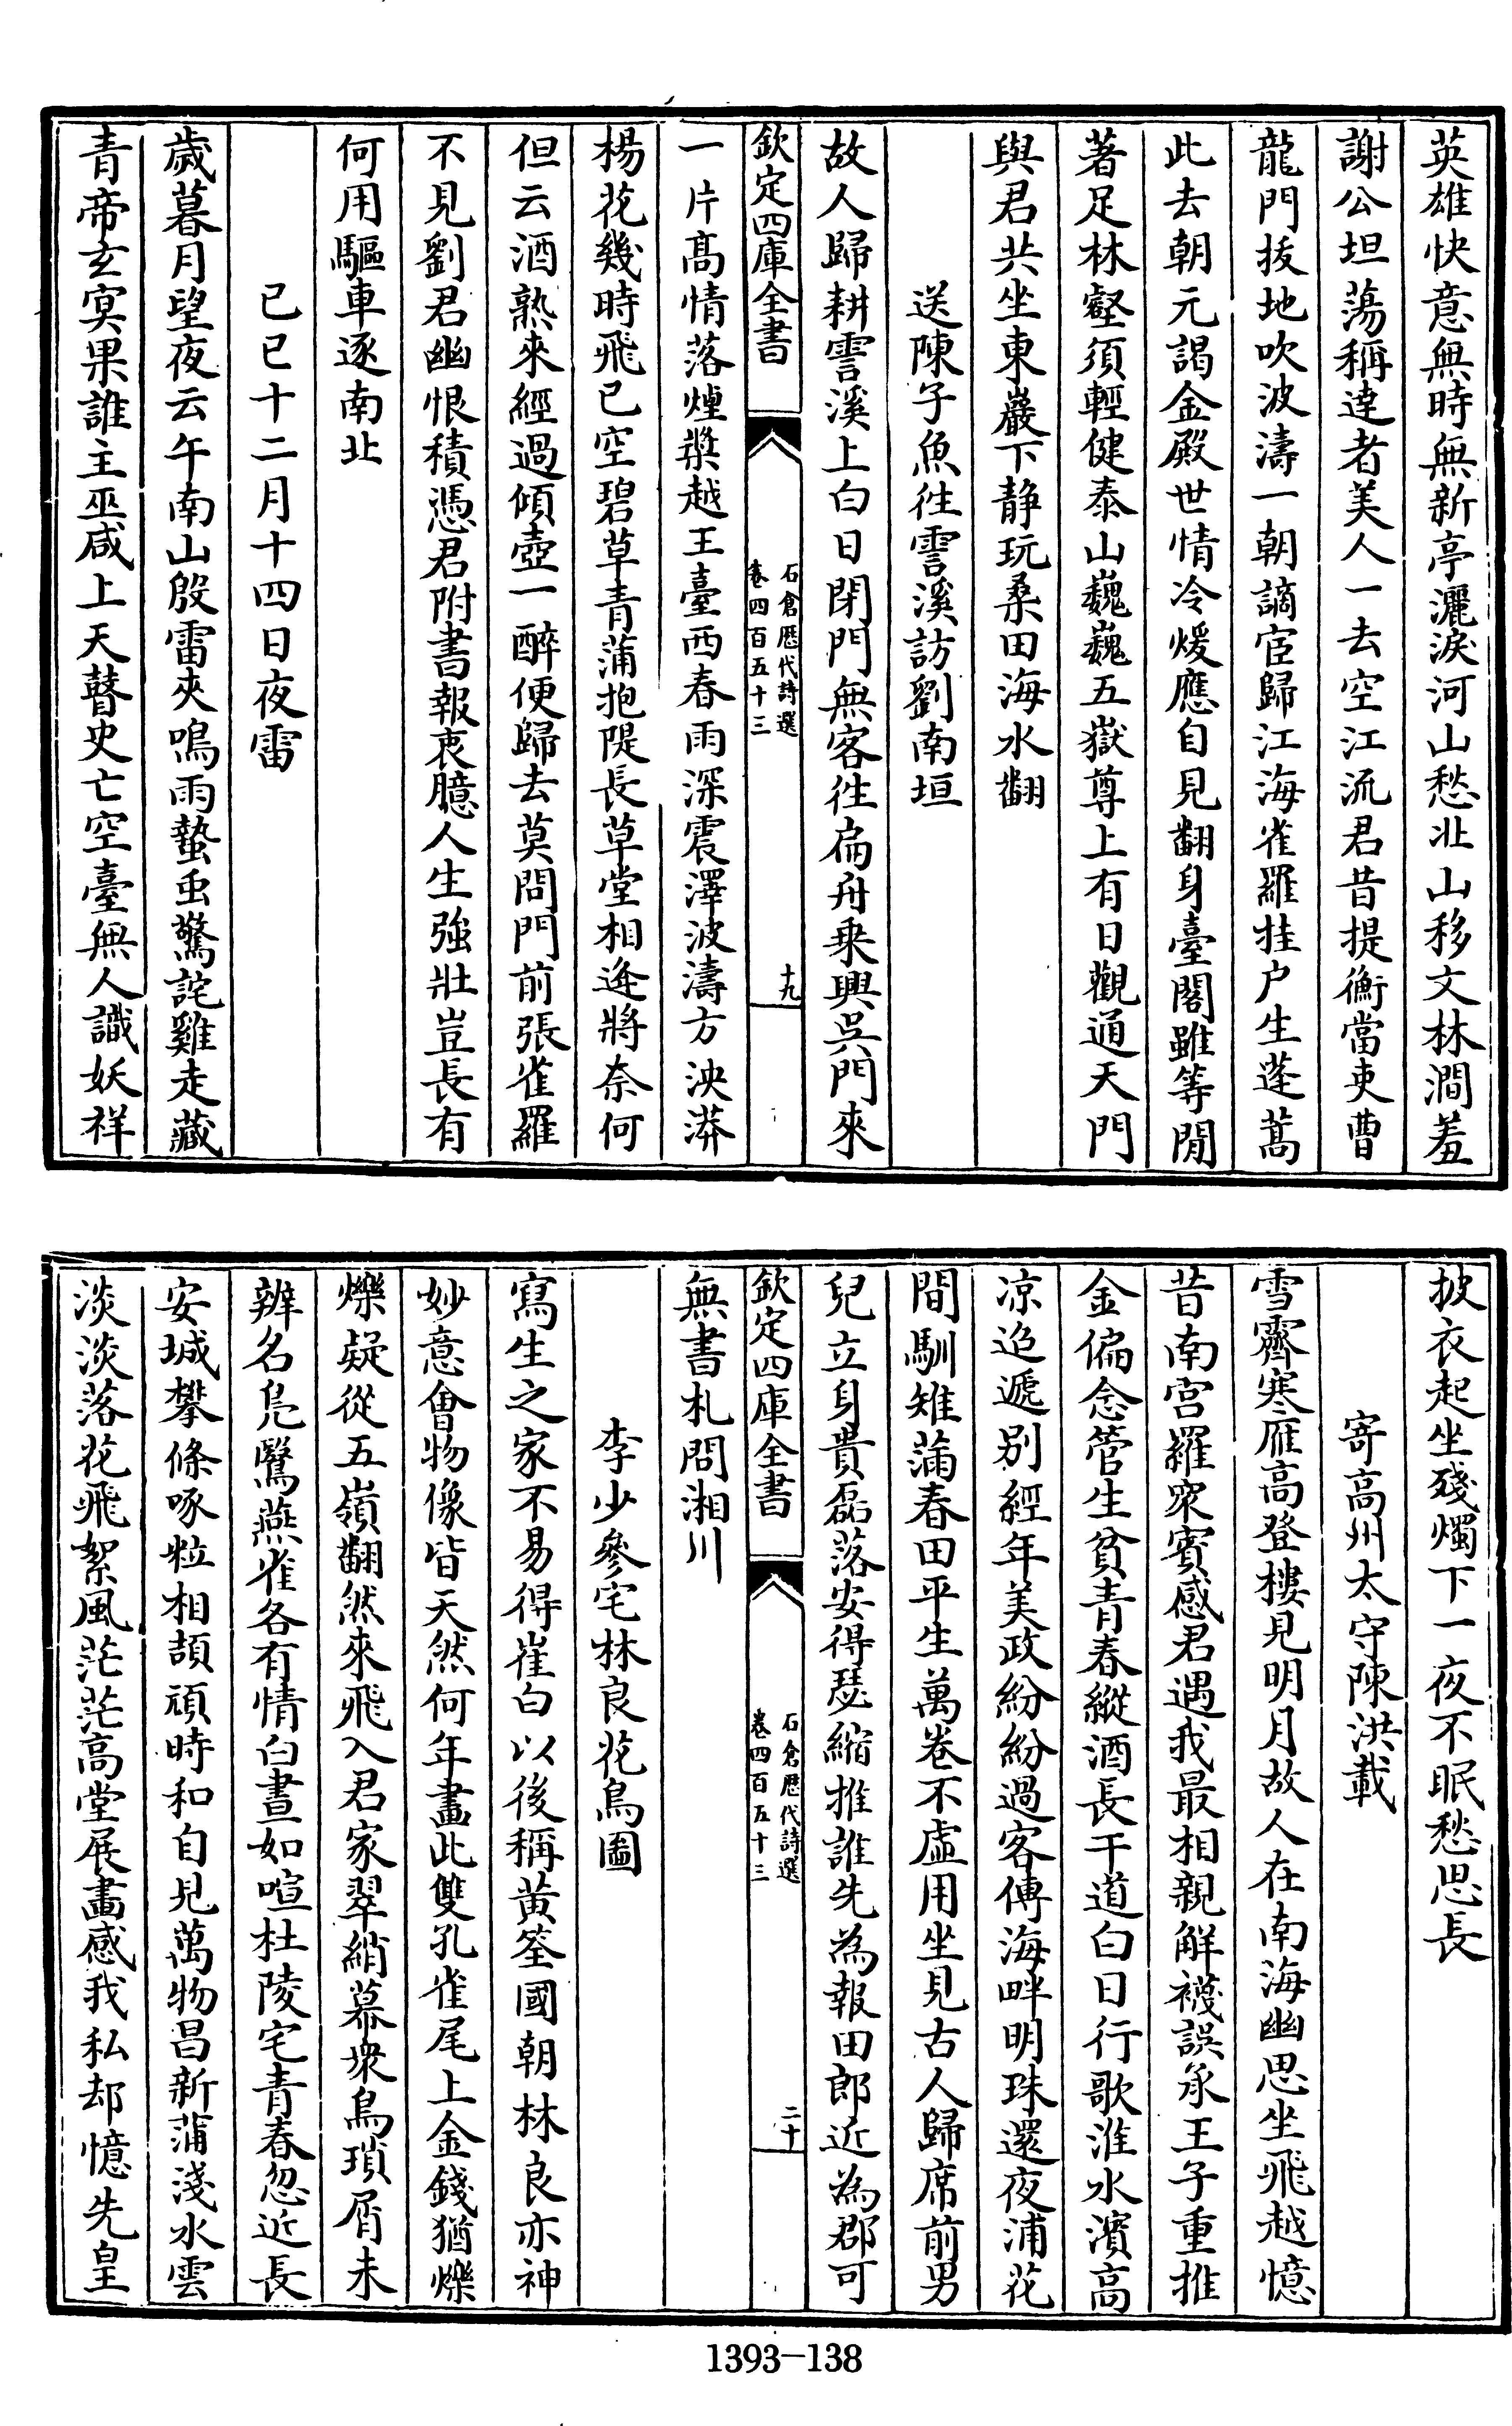 英雄快意無時無新亭灑淚河山愁北山移文林澗羞
謝公坦蕩稱達者美人一去空江流君昔提衡當吏曹
龍門拔地吹波濤一朝謫宦歸江海雀羅挂户生蓬蒿
此去朝元謁金殿世情冷煖應自見翻身臺閣雖等閒
著足林壑須輕健泰山巍巍五嶽尊上有日觀通天門
與君共坐東巖下静玩桑田海水翻
送陳子魚徃霅溪訪劉南垣
故人歸耕霅溪上白日閉門無客徃扁舟乗興呉門來
欽定四庫全書
石倉歷代詩選
卷四百五十三
十九
一片髙情落煙槳越王臺西春雨深震澤波濤方泱漭
楊花幾時飛已空碧草青蒲抱隄長草堂相逢將奈何
但云酒熟來經過傾壺一醉便歸去莫問門前張雀羅
不見劉君幽恨積憑君附書報衷臆人生強壯豈長有
何用驅車逐南北
己巳十二月十四日夜雷
歲暮月望夜云午南山殷雷夾鳴雨蟄虫驚詫雞走藏
青帝玄冥果誰主巫咸上天瞽史亡空臺無人識妖祥
披衣起坐殘燭下一夜不眠愁思長
寄高州太守陳洪載
雪霽寒雁高登樓見明月故人在南海幽思坐飛越憶
昔南宫羅衆賓感君遇我最相親解襪誤承王子重推
金偏念管生貧青春縱酒長干道白日行歌淮水濱高
凉迢遞别經年美政紛紛過客傳海畔明珠還夜浦花
間馴雉滿春田平生萬卷不虛用坐見古人歸席前男
兒立身貴磊落安得瑟縮推誰先為報田郎近為郡可
欽定四庫全書
石倉歷代詩選
卷四百五十三
二十
無書札問湘川
李少參宅林良花鳥圖
寫生之家不易得崔白以後稱黄筌國朝林良亦神
妙意會物像皆天然何年畫此雙孔雀尾上金錢猶爍
爍疑從五嶺翻然來飛入君家翠綃幕衆鳥瑣屑未
辨名鳧鷖燕雀各有情白晝如喧杜陵宅青春忽近長
安城攀條啄粒相頡頏時和自見萬物昌新蒲淺水雲
淡淡落花飛絮風茫茫高堂展畫感我私却憶先皇
1393-138